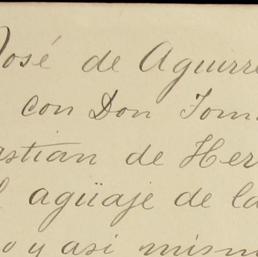 José de Aguirre
con Don Tom
astian de Her
agüaje de la
y asi mism